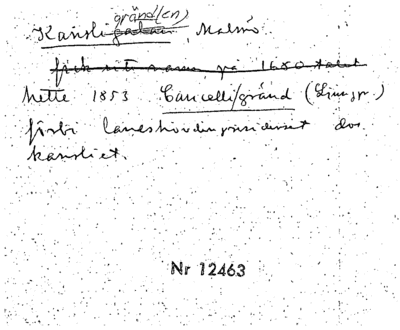 gränd(en)
Kansligatan, Malmö
fick sitt namn på 1680-talet
hette 1853 Cancelligränd (Ljunggr.)
förbi landshövdingresidenset dvs
kansliet.
Nr 12463